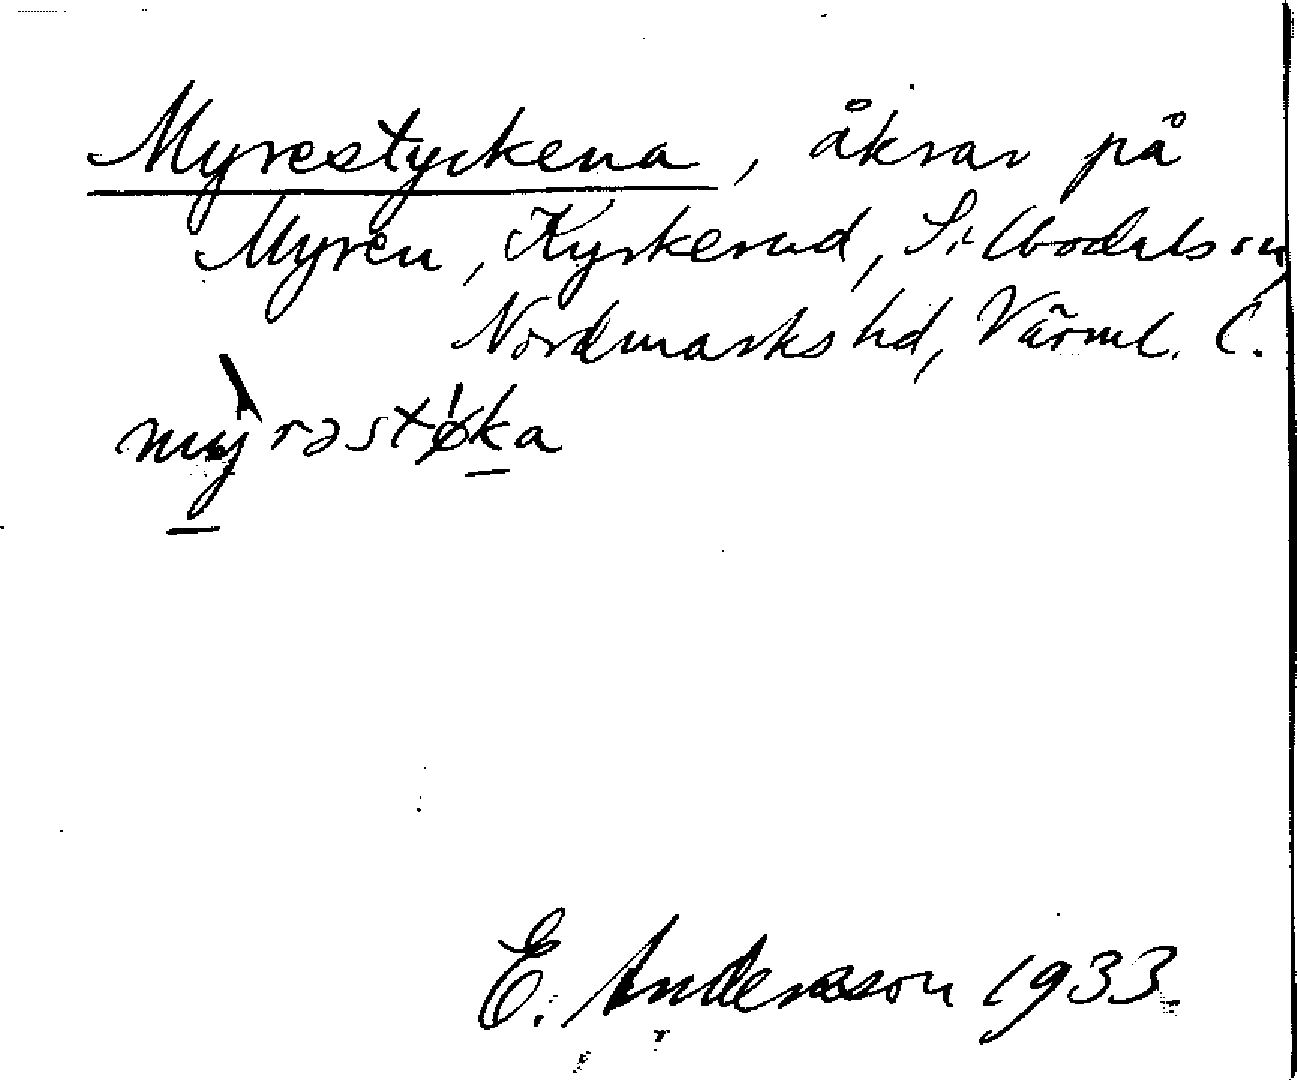 Myrestyckena, åkrar på
Myren, Kyrkerud, Silbodals sn,
Nordmarks hd, Värml. l.
mỳ̱rəstø̍ḵa
E. Andersson 1933.